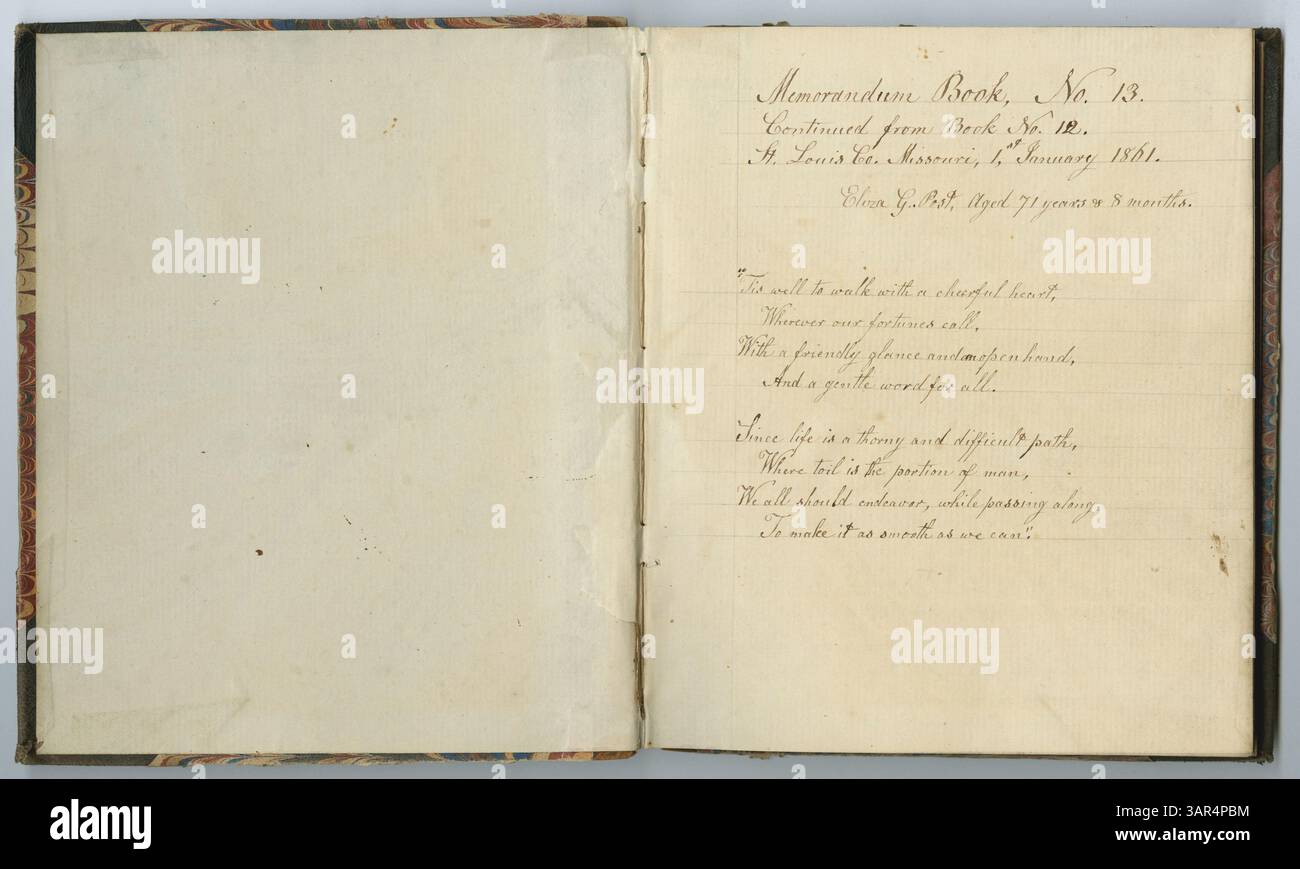 Memorandum Book, No. 13.
Continued from Book No. 12.
St. Louis Co. Missouri, 1,st January 1861.
Eliza G. Post, Aged 71 years & 8 months.
"Tis well to walk with a cheerful heart,
Wherever our fortunes call,
With a friendly glance and an open hand,
And a gentle word for all.
Since life is a thorny and difficult path,
Where toil is the portion of man,
We all should endeavor, while passing along,
To make it as smooth as we can".
alamy
Image ID: 3AR4PBM
www.alamy.com